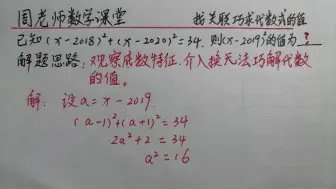 周老师数学课堂 找关联巧求代数式的值
已知(x-2018)²+(x-2020)²=34.则(x-2019)²的值为?
解题思路:观察底数特征.介入换元法巧解代数
的值。
解:设a=x-2019.
(a-1)²+(a+1)²=34
2a²+2=34
a²=16